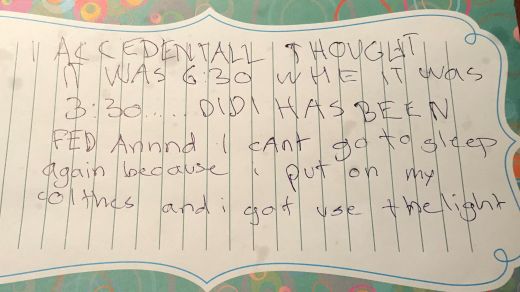 I ACCEDENTALL THOUGHT
IT WAS 6:30 WHE IT was
3:30..... DIDI HAS BEEN
FED Annnd I cAnt go to sleep
again because i put on my
colthes and i got use the light